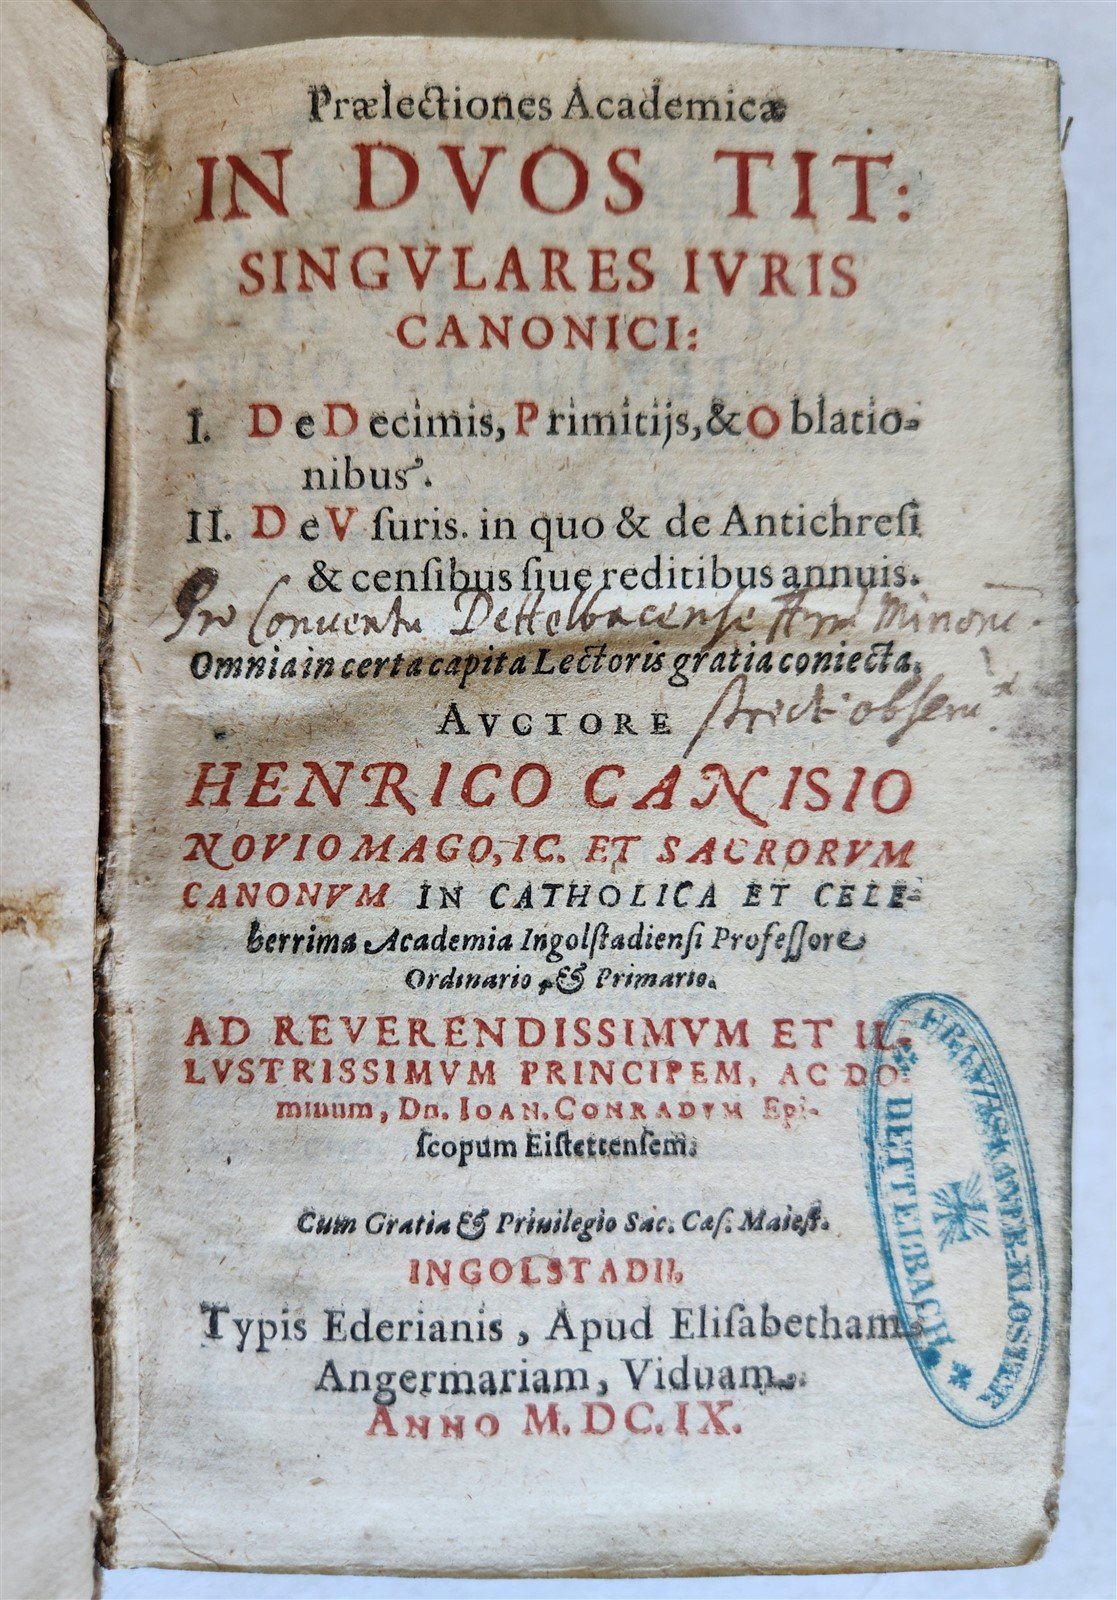 Prælectiones Academicæ
IN DVOS TIT:
SINGVLARES IVRIS
CANONICI:
I. De Decimis, Primitijs, & Oblatio-
nibus.
II. De Vſuris. in quo & de Antichreſi
& cenſibus ſiue reditibus annuis.
Pro Conventu Dettelbacense Minoru
Omnia in certa capita Lectoris gratia coniecta,
strict: observ
AVCTORE
HENRICO CANISIO
NOVIOMAGO, IC. ET SACRORVM
CANONVM IN CATHOLICA ET CELE-
berrima Academia Ingolſtadienſi Profeſſore
Ordinario, & Primario.
AD REVERENDISSIMVM ET IL-
LVSTRISSIMVM PRINCIPEM, AC DO-
minum, Dn. IOAN. CONRADVM Epi-
ſcopum Eiſtettenſem.
Cum Gratia & Priuilegio Sac. Cæſ. Maieſt.
INGOLSTADII,
Typis Ederianis, Apud Eliſabetham
Angermariam, Viduam.
ANNO M. DC. IX.
FRANZISKANER-KLOSTER
DETTELBACH